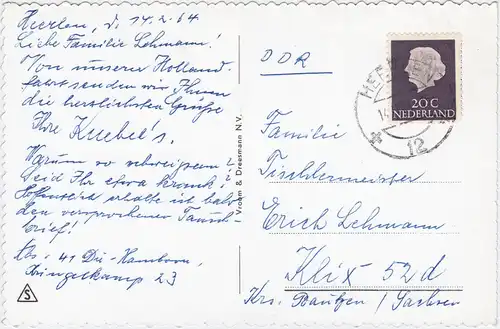 Heerlen, d. 14.2.64
Liebe Familie Lehmann!
Von unserer Holland-
fahrt senden wir Ihnen
die herzlichsten Grüße
Ihre Knebel's.
Warum so schweigsam?
Seid Ihr etwa krank?
Hoffentlich erhalte ich bald
den versprochenen Tausch-
brief!
Abs: 41 Du-Hamborn,
Ringelkamp 23
S
Vroom & Dreesmann N.V.
DDR
20 C
NEDERLAND
12
Familie
Tischlermeister
Erich Lehmann
Klix 52d
Krs. Bautzen / Sachsen